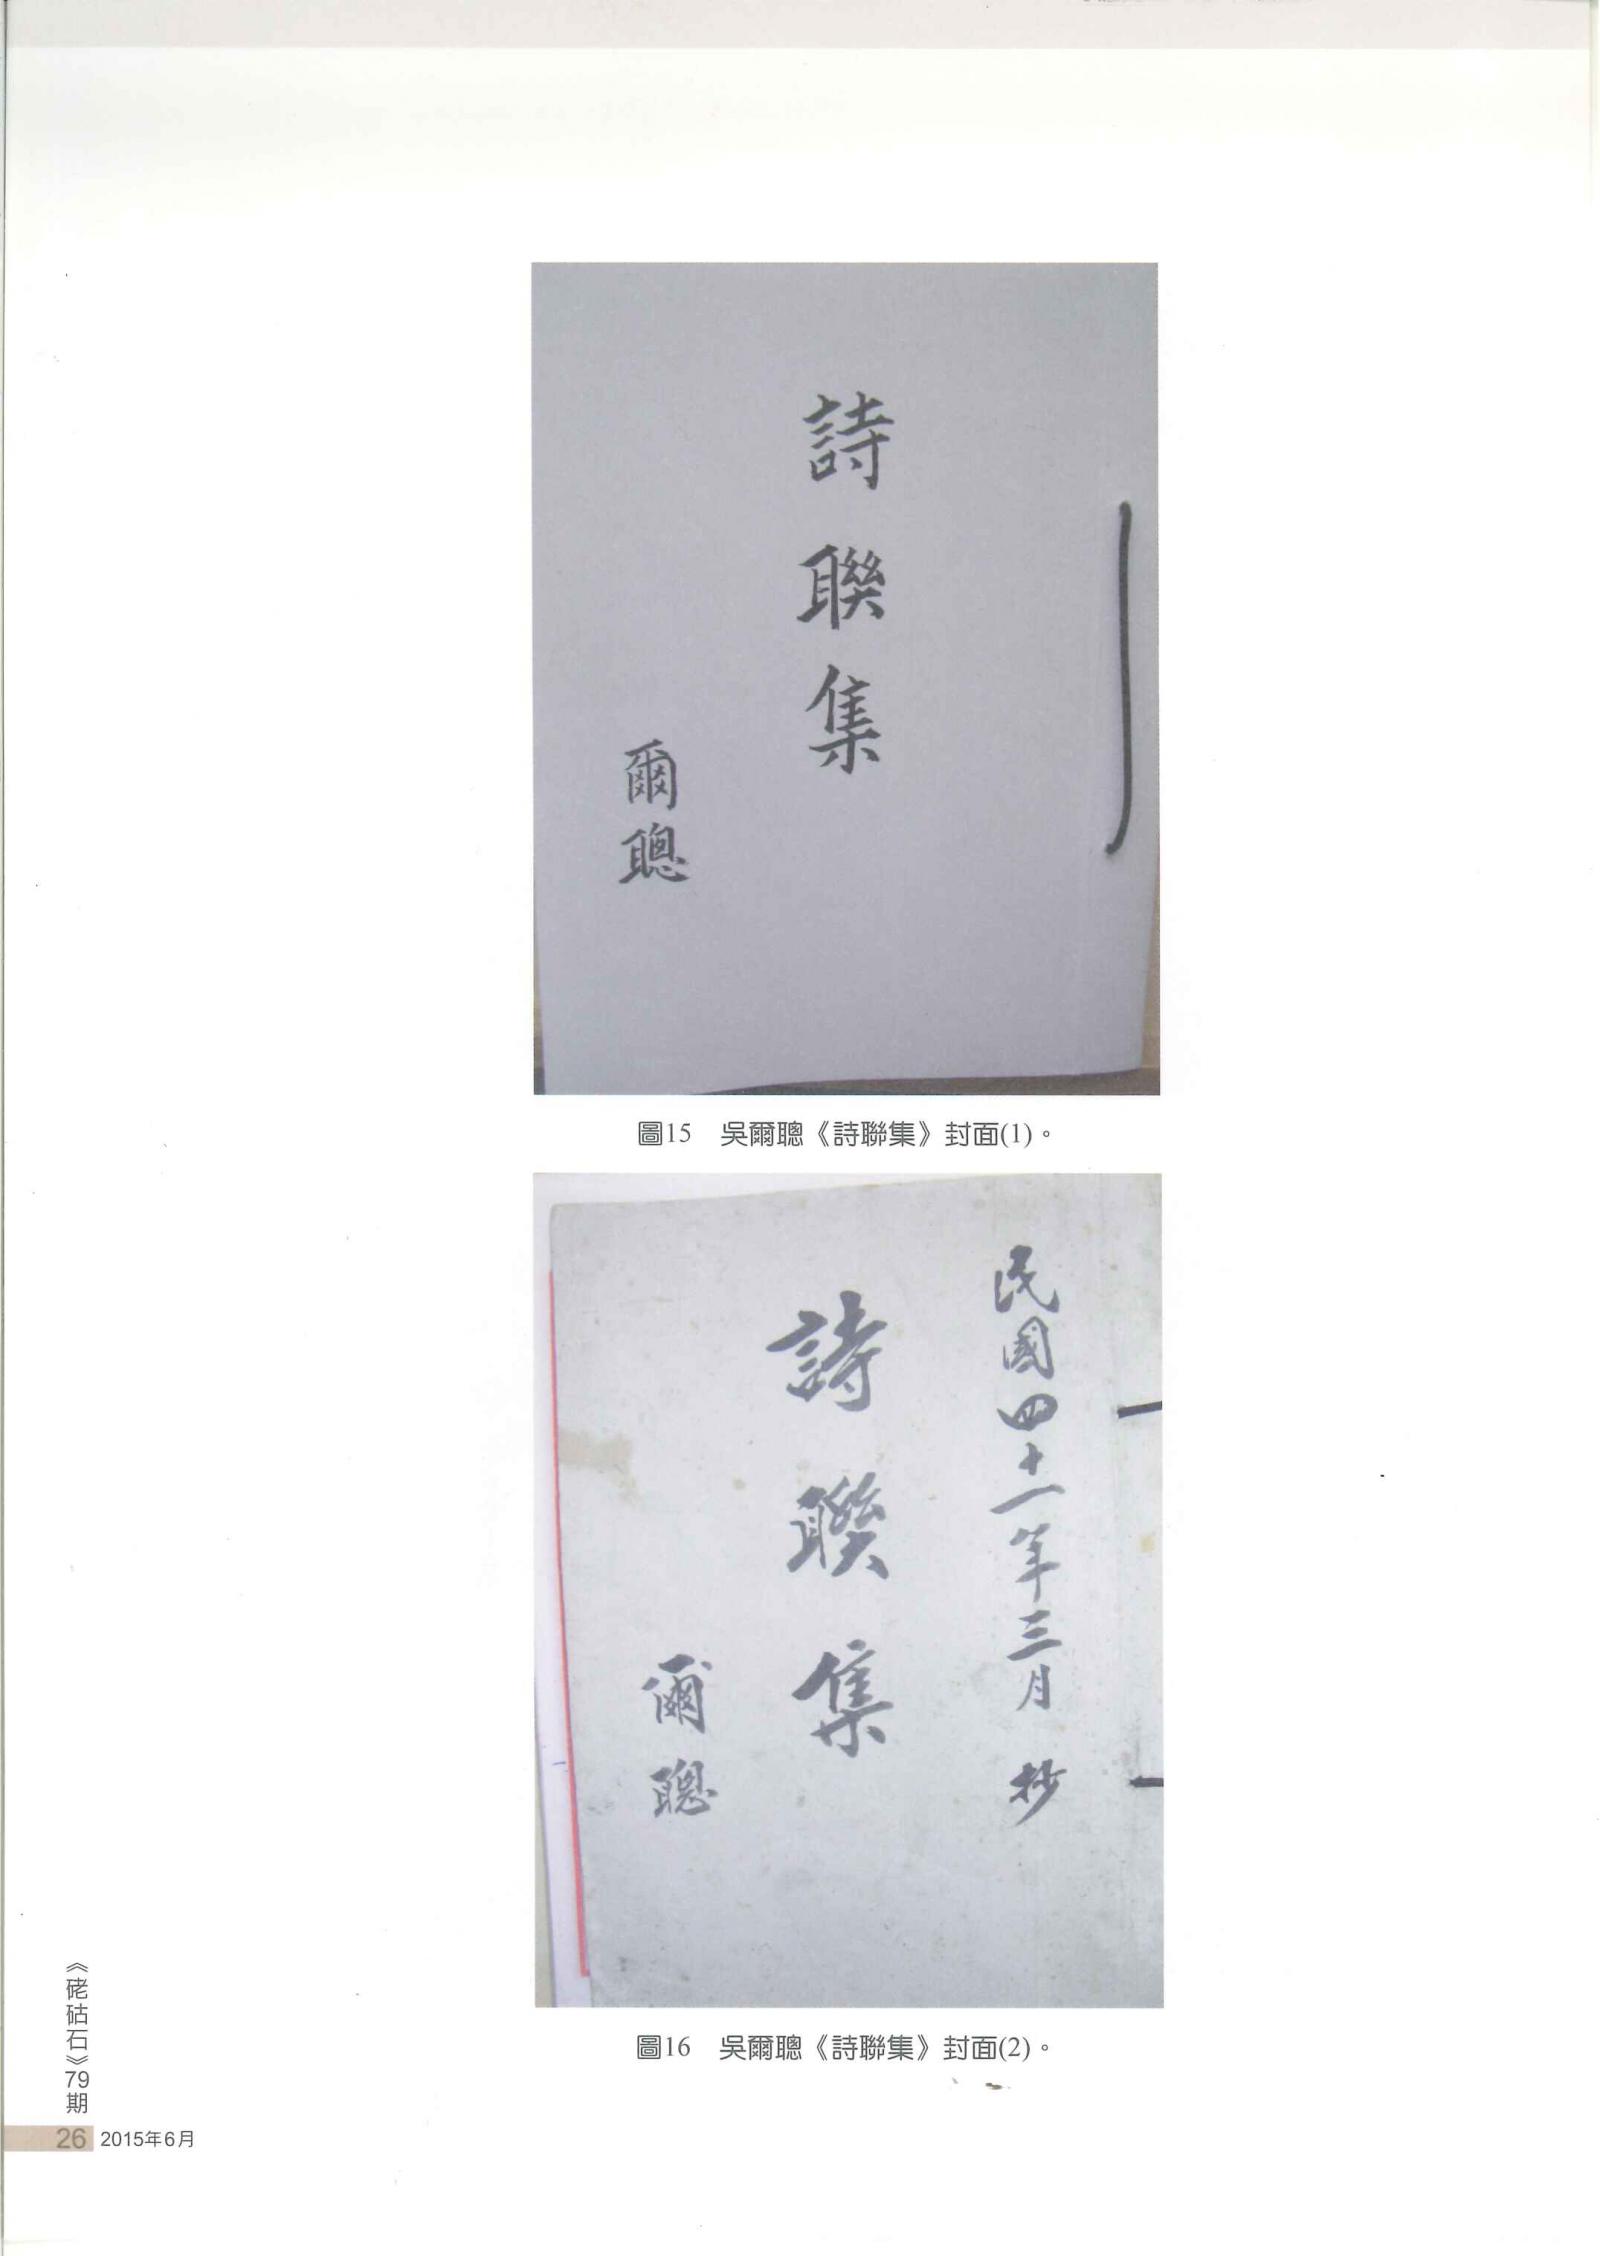 詩聯集
爾聰
圖15　吳爾聰《詩聯集》封面(1)。
民國四十一年三月 抄
詩聯集
爾聰
圖16　吳爾聰《詩聯集》封面(2)。
《硓𥑮石》79期
26 2015年6月